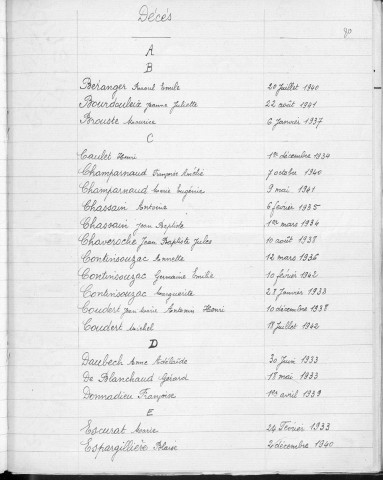 Décés
90
A
B
Béranger Raoul Emile 20 Juillet 1940
Bourdouleix Jeanne Juliette 22 août 1941
Brouste Maurice 6 Janvier 1937
C
Caulet Henri 1er décembre 1934
Champarnaud Françoise Amélie 7 octobre 1940
Champarnaud Louis Eugénie 9 mai 1941
Chassain Antoine 6 février 1935
Chassain Jean Baptiste 1er mars 1934
Chaveroche Jean Baptiste Jules 10 août 1938
Continsouzac Annette 12 mars 1936
Continsouzac Germaine Emilie 10 février 1942
Continsouzac Marguerite 28 Janvier 1933
Coudert Jean Louis Antonin Henri 10 décembre 1938
Coudert Michel 18 Juillet 1942
D
Daubech Anne Adélaïde 30 Juin 1933
De Blanchaud Gérard 18 mai 1933
Donnadieu Françoise 1er avril 1939
E
Escurat Marie 24 Février 1933
Espargillière Blaise 2 décembre 1940